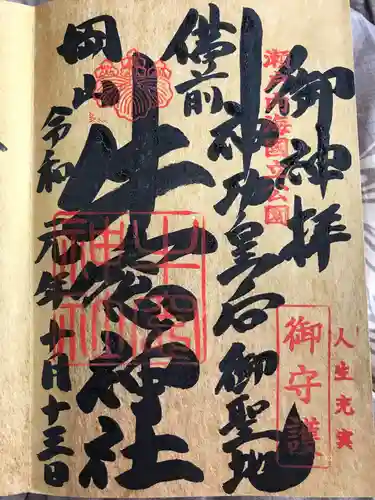 御神拝
瀬戸内海國立公園
人生充実
御守護
備前
神功皇后御聖地
岡山
牛窓神社
牛窓神社
令和元年廿月十三日